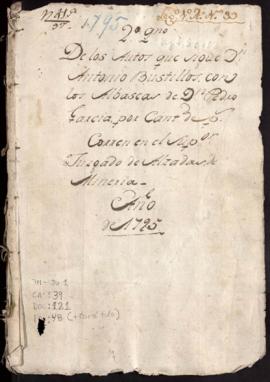 1795
2º qno
De los Autos que sigue Dn
Antonio Bustillos, con
los Albaseas de Dn Pedro
Garcia, por Cantd de ps.
Corren en el Supor
Juzgado de Alzadas de
Mineria
Año
de 1795
m-Ju 1
CA: 39
DOC: 121
48 (+ carátula)